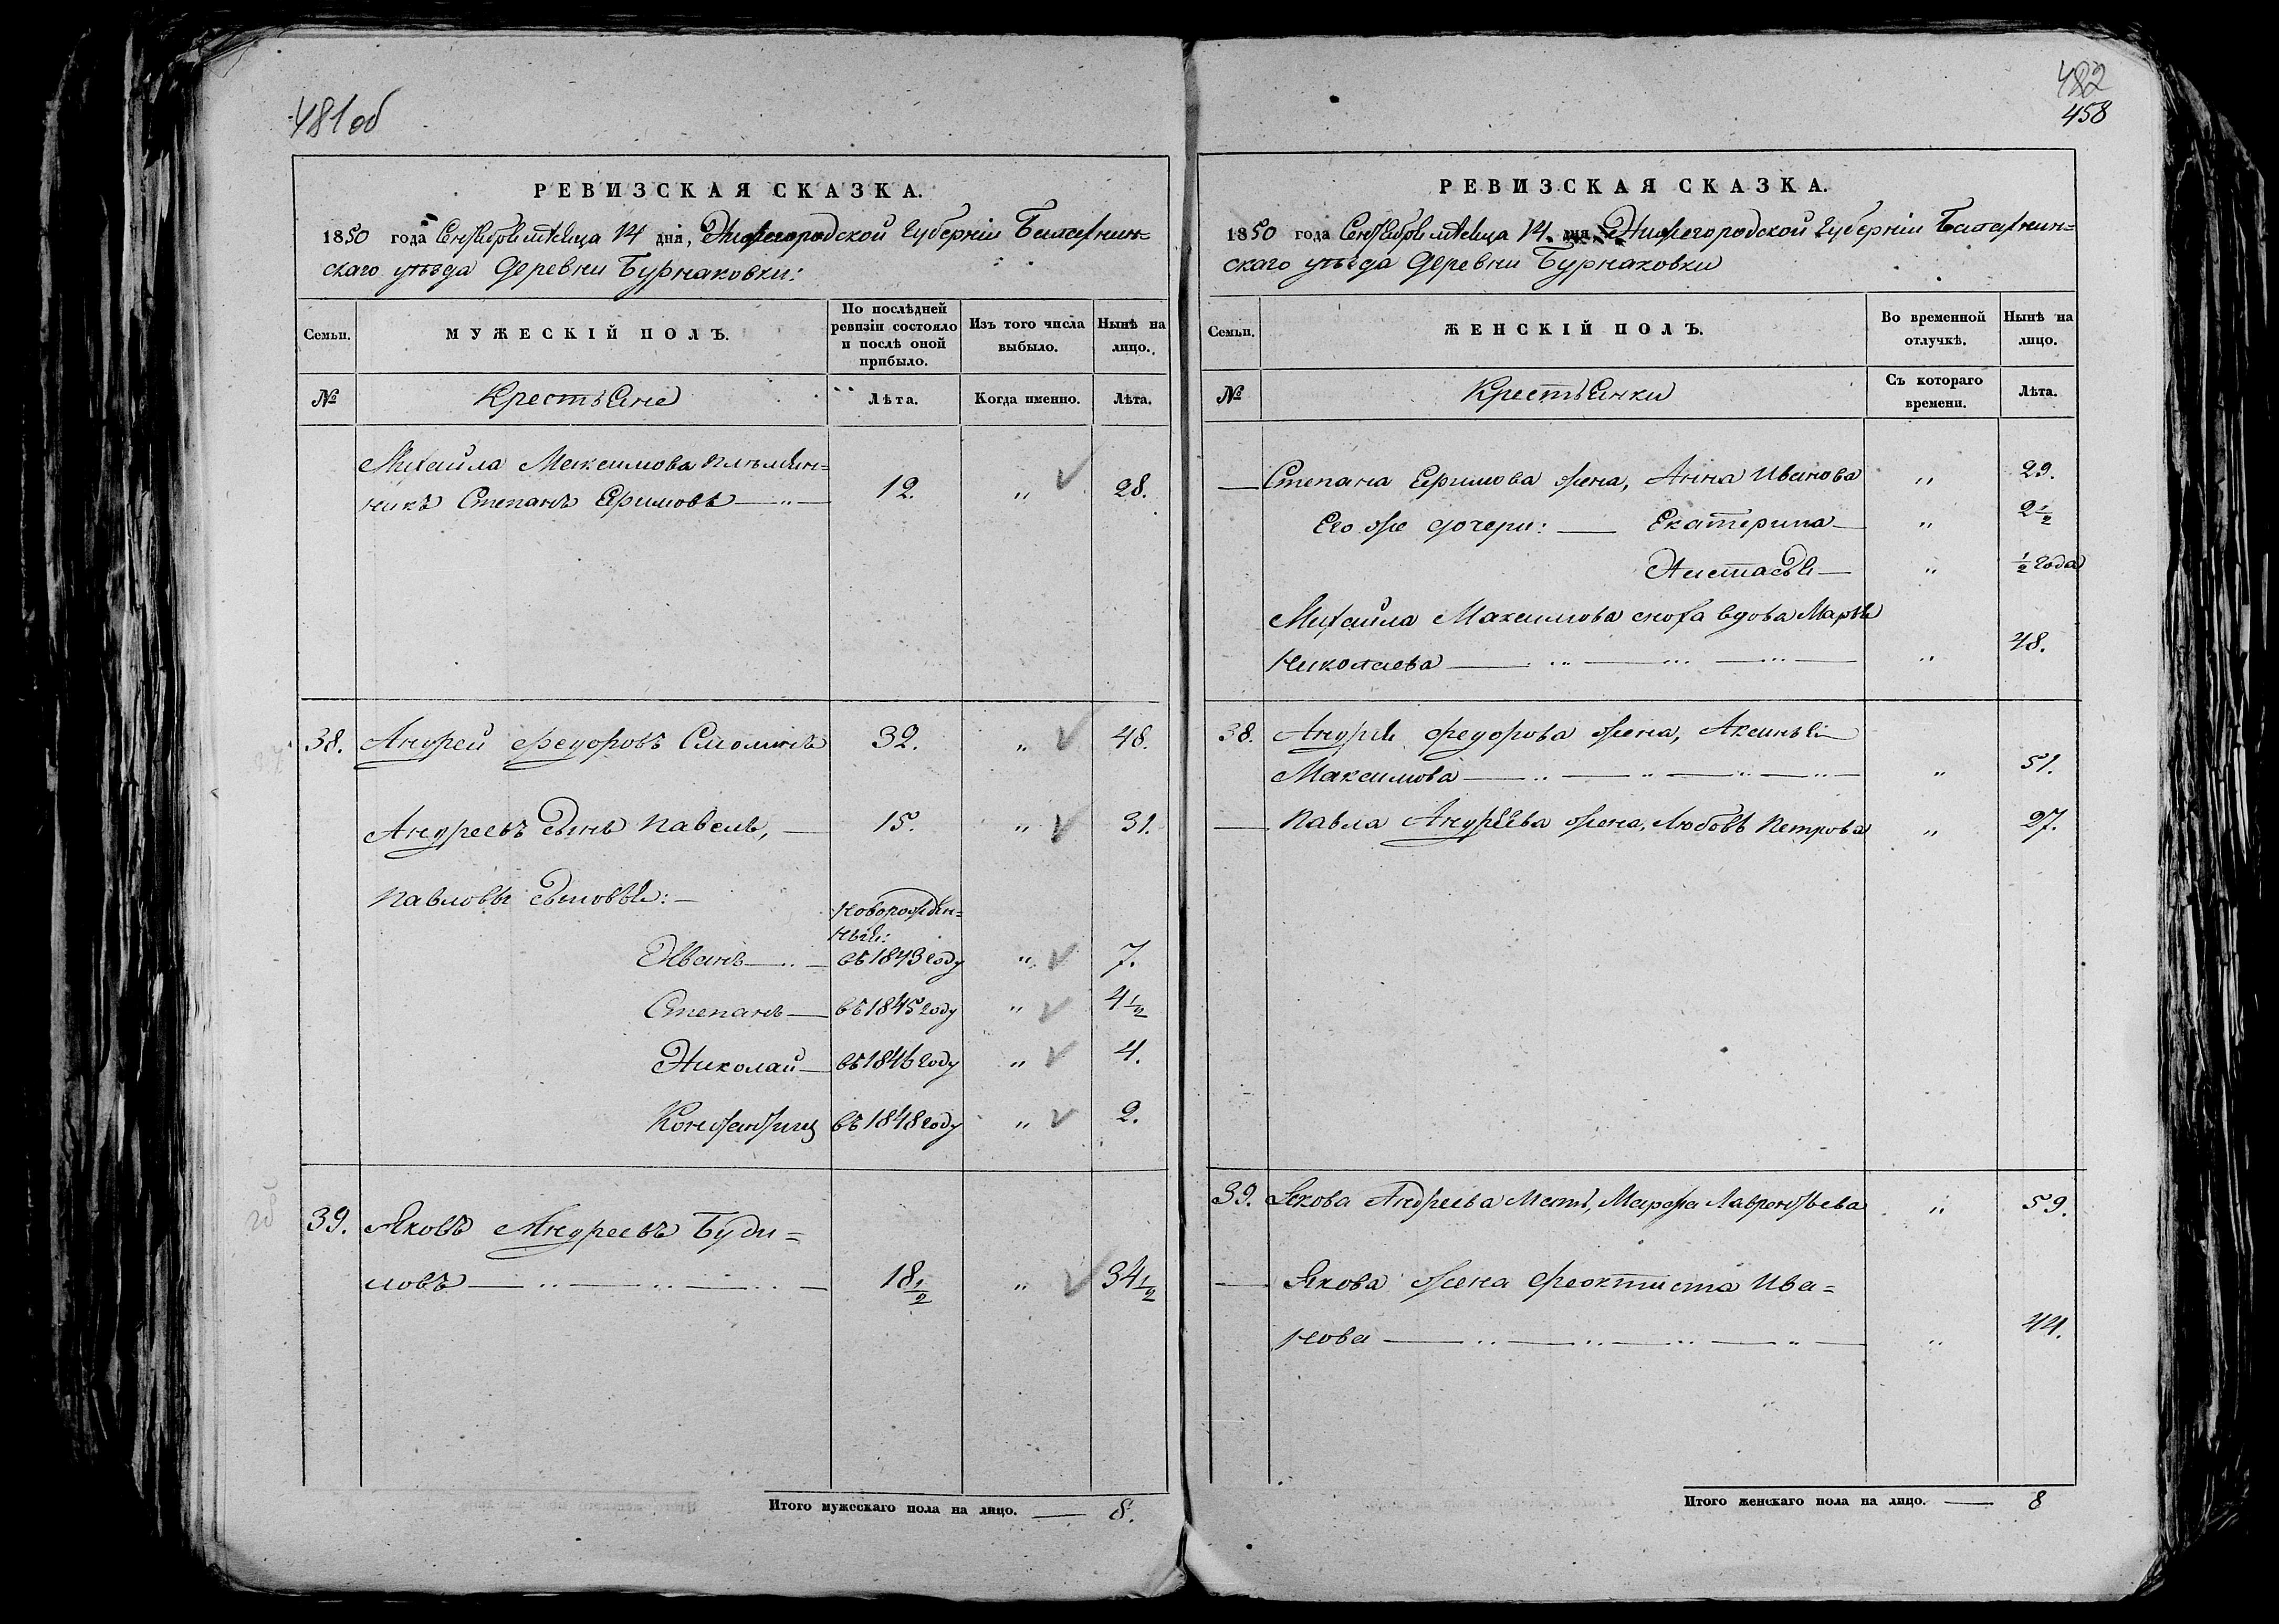 481 об
РЕВИЗСКАЯ СКАЗКА.
1850 года Сентября мѣсяца 14 дня, Нижегородской Губерніи Балахнин=
скаго уѣзда Деревни Бурнаковки:
Семьи.
МУЖЕСКІЙ ПОЛЪ.
По послѣдней ревизіи состояло и послѣ оной прибыло.
Изъ того числа выбыло.
Нынѣ на лицо.
№
Крестьяне
Лѣта.
Когда именно.
Лѣта.
Михайла Максимова племян=
никъ Степанъ Ефимовъ 12. „ 28.
38. Андрей Федоровъ 32. „ 48.
Андреевъ сынъ Павелъ, 15. „ 31.
Павловы сыновья:
Новорожден=
ный:
Иванъ въ 1843 году „ 7.
Степанъ въ 1845 году „ 4 1/2
Николай въ 1846 году „ 4.
въ 1848 году „ 2.
39. Яковъ Андреевъ Буди=
ловъ 18 1/2 „ 34 1/2
Итого мужескаго пола на лицо. 8.
482
458
РЕВИЗСКАЯ СКАЗКА.
1850 года Сентября мѣсяца 14 дня Нижегородской Губерніи Балахнин=
скаго уѣзда Деревни Бурнаковки
Семьи.
ЖЕНСКІЙ ПОЛЪ.
Во временной отлучкѣ.
Нынѣ на лицо.
№
Крестьянки
Съ котораго времени.
Лѣта.
Степана Ефимова жена, Анна Иванова „ 29.
Его же дочери: Екатерина „ 2 1/2
Настасья „ 1/2 года
Михайла Максимова сноха вдова Марья
Николаева „ 48.
38. Андрея Федорова жена, Аксинья
Максимова „ 51.
Павла Андреева жена, Любовь Петрова „ 27.
39. Якова Андреева Мать, Марфа Лаврентьева „ 59.
Якова жена Феоктиста Ива=
нова „ 44.
Итого женскаго пола на лицо. 8